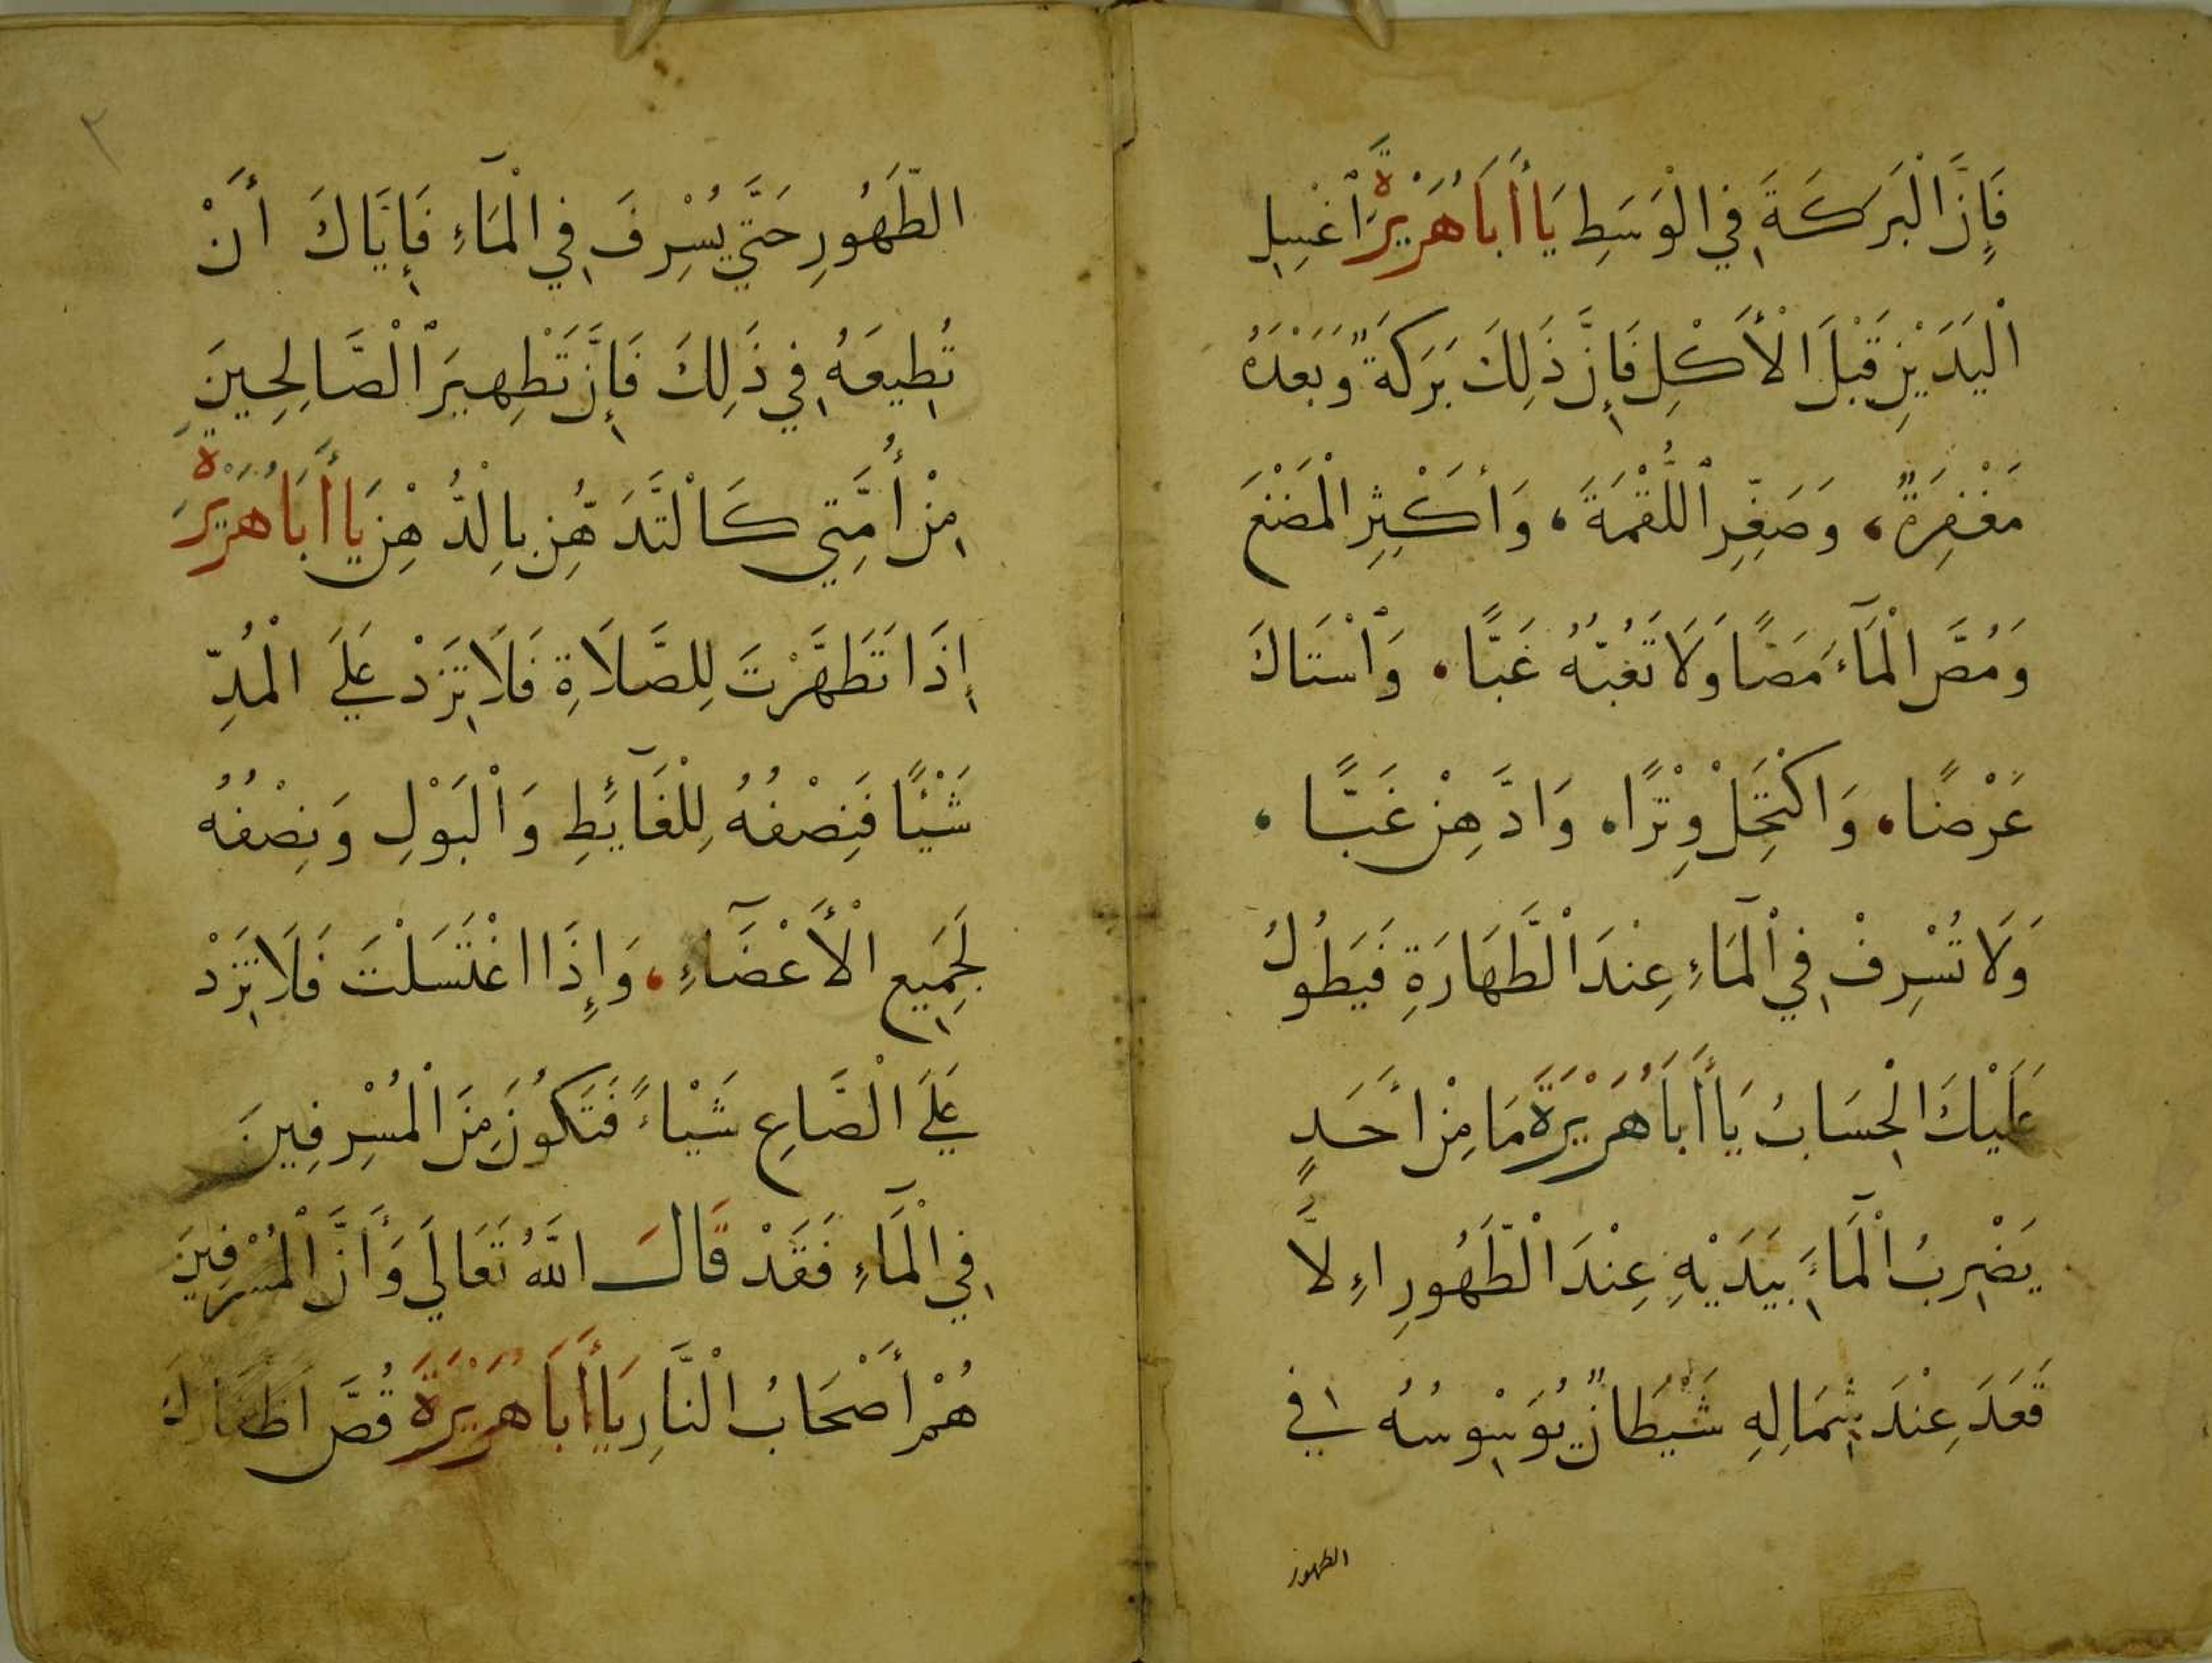 فَإِنَّ الْبَرَكَةَ فِي الْوَسَطِ يَا أَبَا هُرَيْرَةَ اغْسِلِ
الْيَدَيْنِ قَبْلَ الْأَكْلِ فَإِنَّ ذَلِكَ بَرَكَةٌ وَبَعْدَهُ
مَغْفِرَةٌ، وَصَغِّرِ اللُّقْمَةَ، وَأَكْثِرِ الْمَضْغَ
وَمُصَّ الْمَآءَ مَصًّا وَلَا تَغُبُّهُ غَبًّا، وَاسْتَاكَ
عَرْضًا، وَاكْتَحِلْ وِتْرًا، وَادَّهِنْ غَبًّا،
وَلَا تُسْرِفْ فِي الْمَآءِ عِنْدَ الطَّهَارَةِ فَيَطُولُ
عَلَيْكَ الْحِسَابُ يَا أَبَا هُرَيْرَةَ مَا مِنْ أَحَدٍ
يَضْرِبُ الْمَآءَ بِيَدَيْهِ عِنْدَ الطَّهُورِ اءِلَّا
قَعَدَ عِنْدَ شِمَالِهِ شَيْطَانٌ يُوَسْوِسُهُ فِي
الطهور
٢
الطَّهُورِ حَتَّي يُسْرِفَ فِي الْمَآءِ فَإِيَّاكَ أَنْ
تُطِيعَهُ فِي ذَلِكَ فَإِنَّ تَطْهِيرَ الصَّالِحِينَ
مِنْ أُمَّتِي كَالْتَّدَهُّنِ بِالدُّهْنِ يَا أَبَا هُرَيْرَةَ
إِذَا تَطَهَّرْتَ لِلصَّلَاةِ فَلَا تَزِدْ عَلَي الْمُدِّ
شَيْئًا فَنِصْفُهُ لِلْغَآئِطِ وَالْبَوْلِ وَنِصْفُهُ
لِجَمِيعِ الْأَعْضَآءِ، وَإِذَا اغْتَسَلْتَ فَلَا تَزِدْ
عَلَي الصَّاعِ شَيْاءً فَتَكُونَ مِنَ الْمُسْرِفِينَ
فِي الْمَآءِ فَقَدْ قَالَ اللَّهُ تَعَالَي وَأَنَّ الْمُسْرِفِينَ
هُمْ أَصْحَابُ النَّارِ يَا أَبَا هُرَيْرَةَ قُصَّ أَظْفَارَكَ